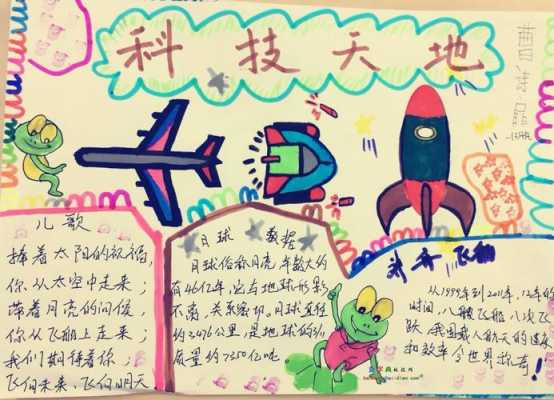 科技天地
儿歌
捧着太阳的祝福，
你从太空中走来；
带着月亮的问候，
你从飞船上走来；
我们期待着你；
飞向未来、飞向明天
月球 数据
月球俗称月亮，年龄大约
有46亿年，它与地球形影
不离，关系密切，月球直径
约3476公里，是地球的3/11
质量约7350亿吨
飞船
从1999年到2011年，12年的
时间，八艘飞船，八次飞
跃，我国载人航天的速度
和效率令世界称奇！